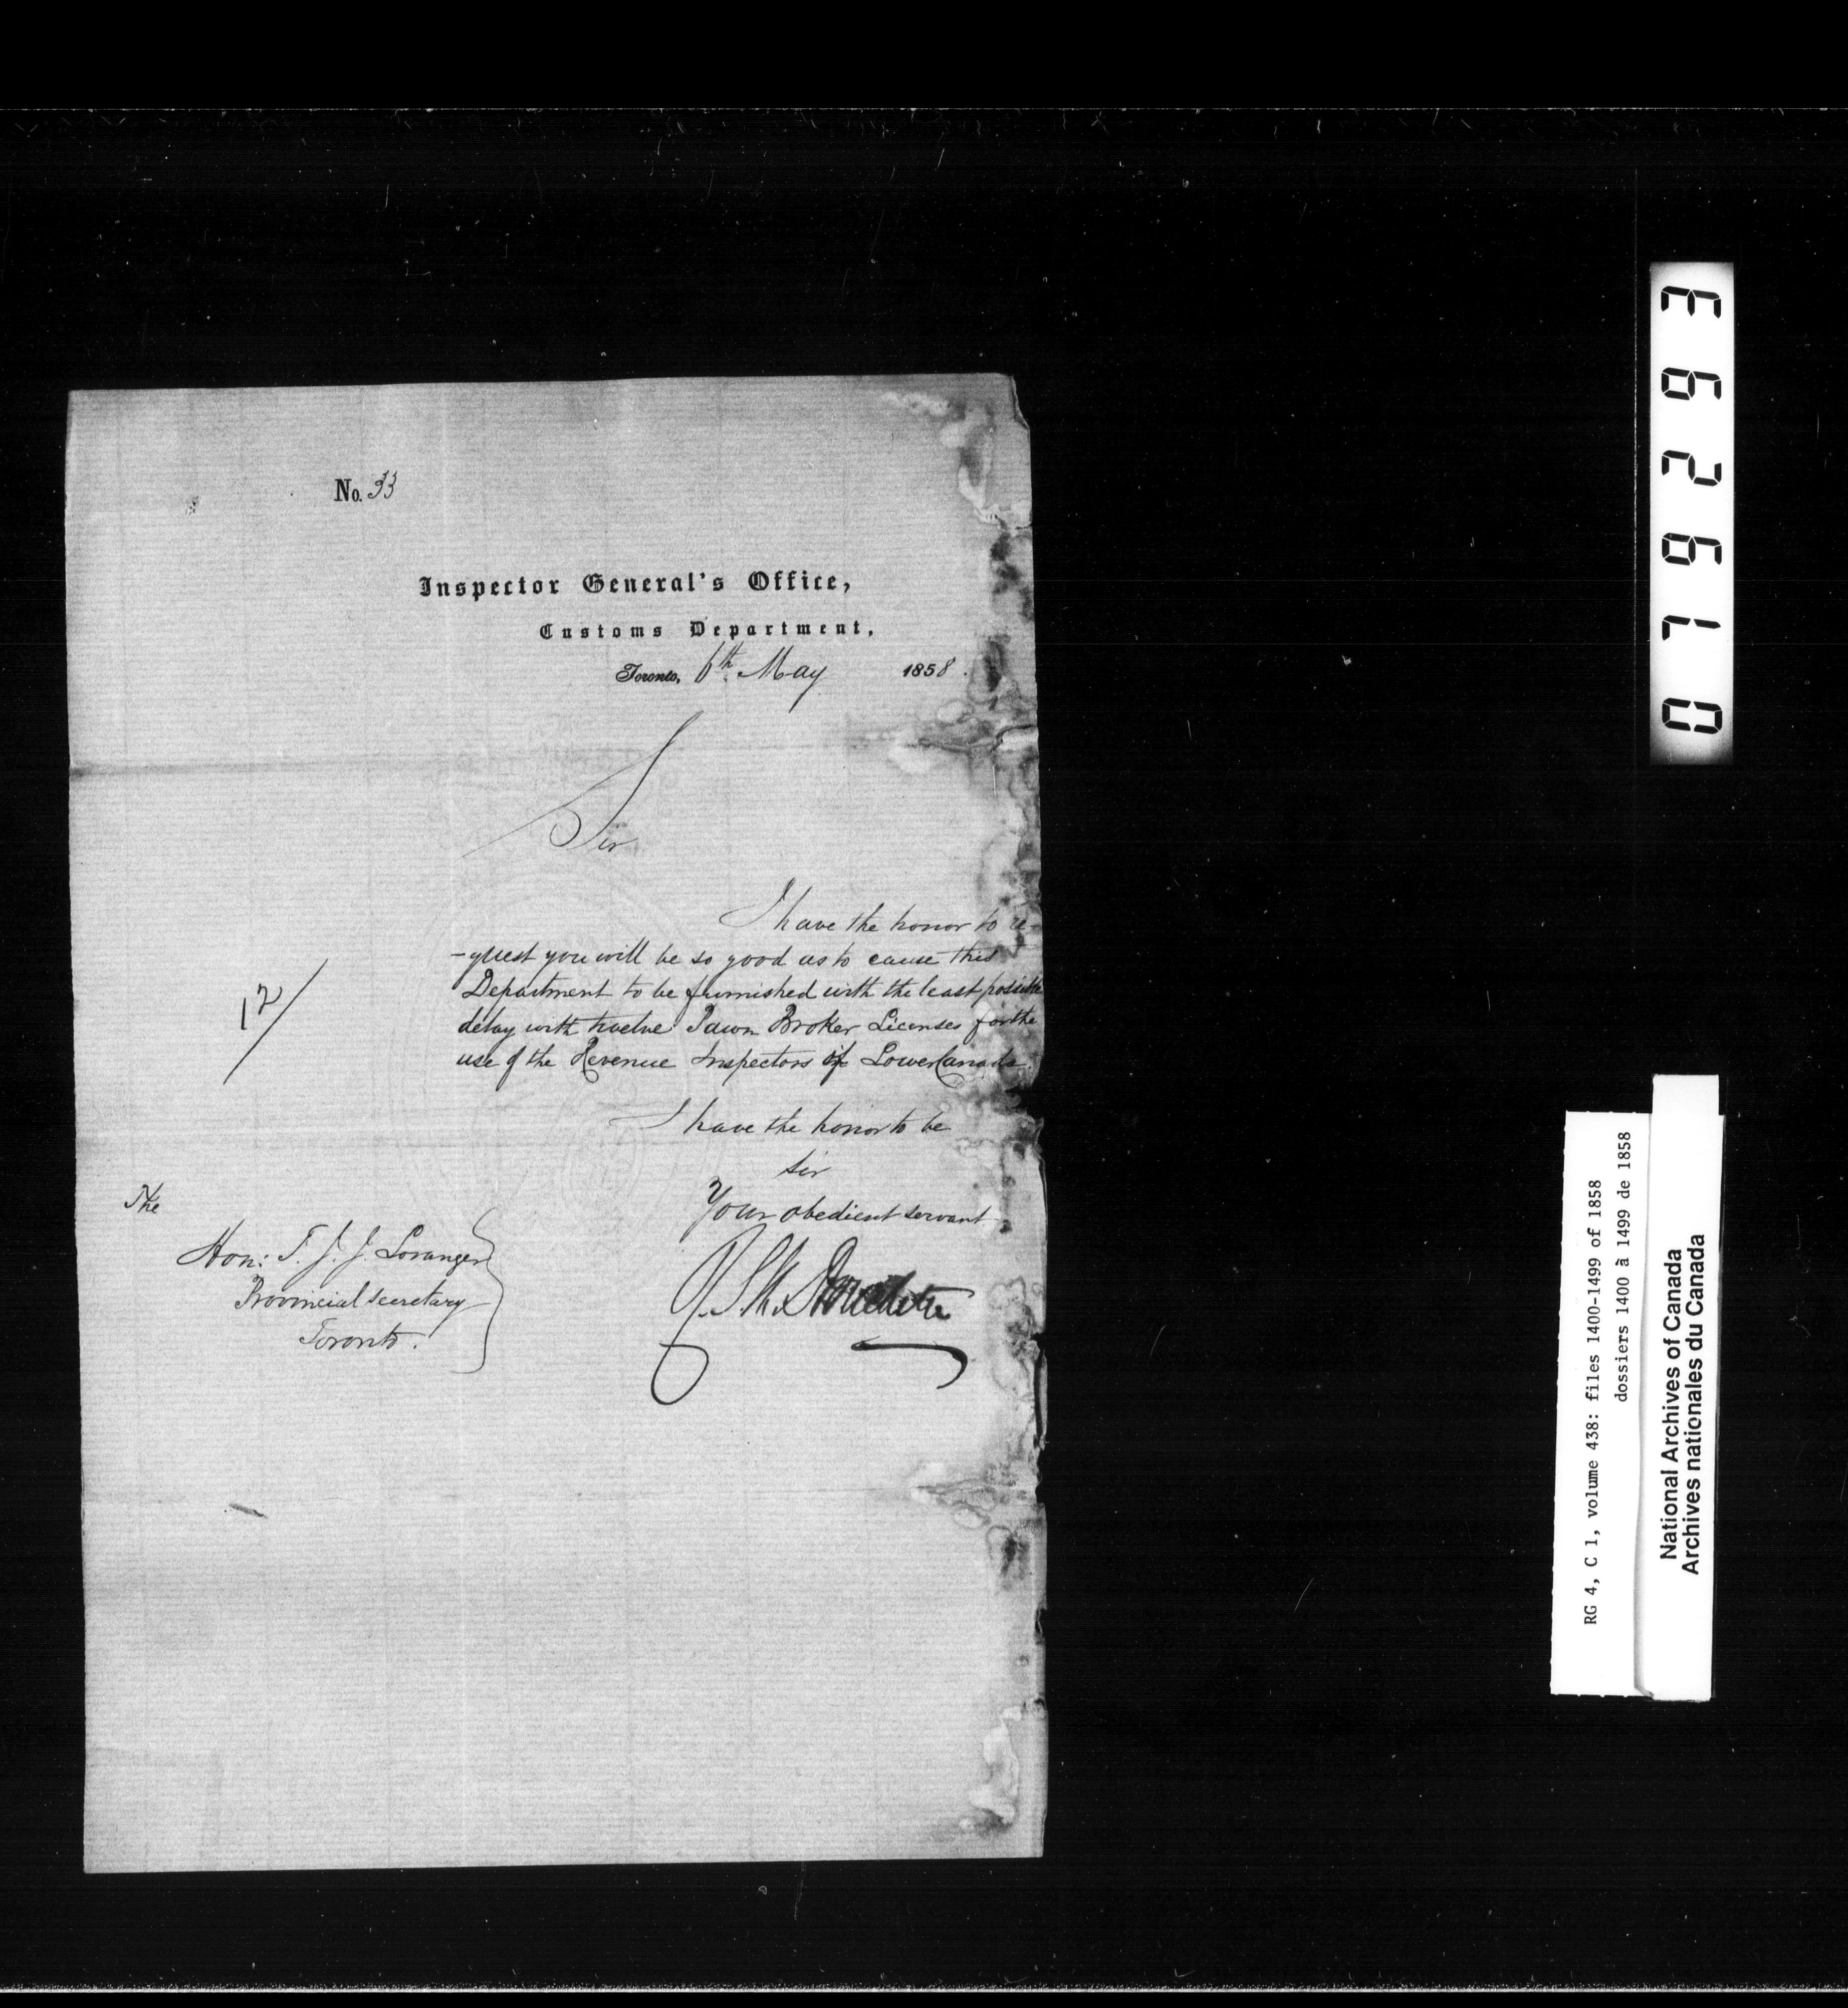 No. 33
Inspector General's Office,
Customs Department,
Toronto, 6th May 1858.
Sir
I have the honor to re-
-quest you will be so good as to cause this
Department to be furnished with the least possible
delay with twelve Pawn Broker Licenses for the
use of the Revenue Inspectors of Lower Canada.
12/
I have the honor to be
Sir
Your obedient servant
The
Hon: T. J. J. Loranger
Provincial Secretary
Toronto.
071629 3
RG 4, C 1, volume 438: files 1400-1499 of 1858
dossiers 1400 à 1499 de 1858
National Archives of Canada
Archives nationales du Canada